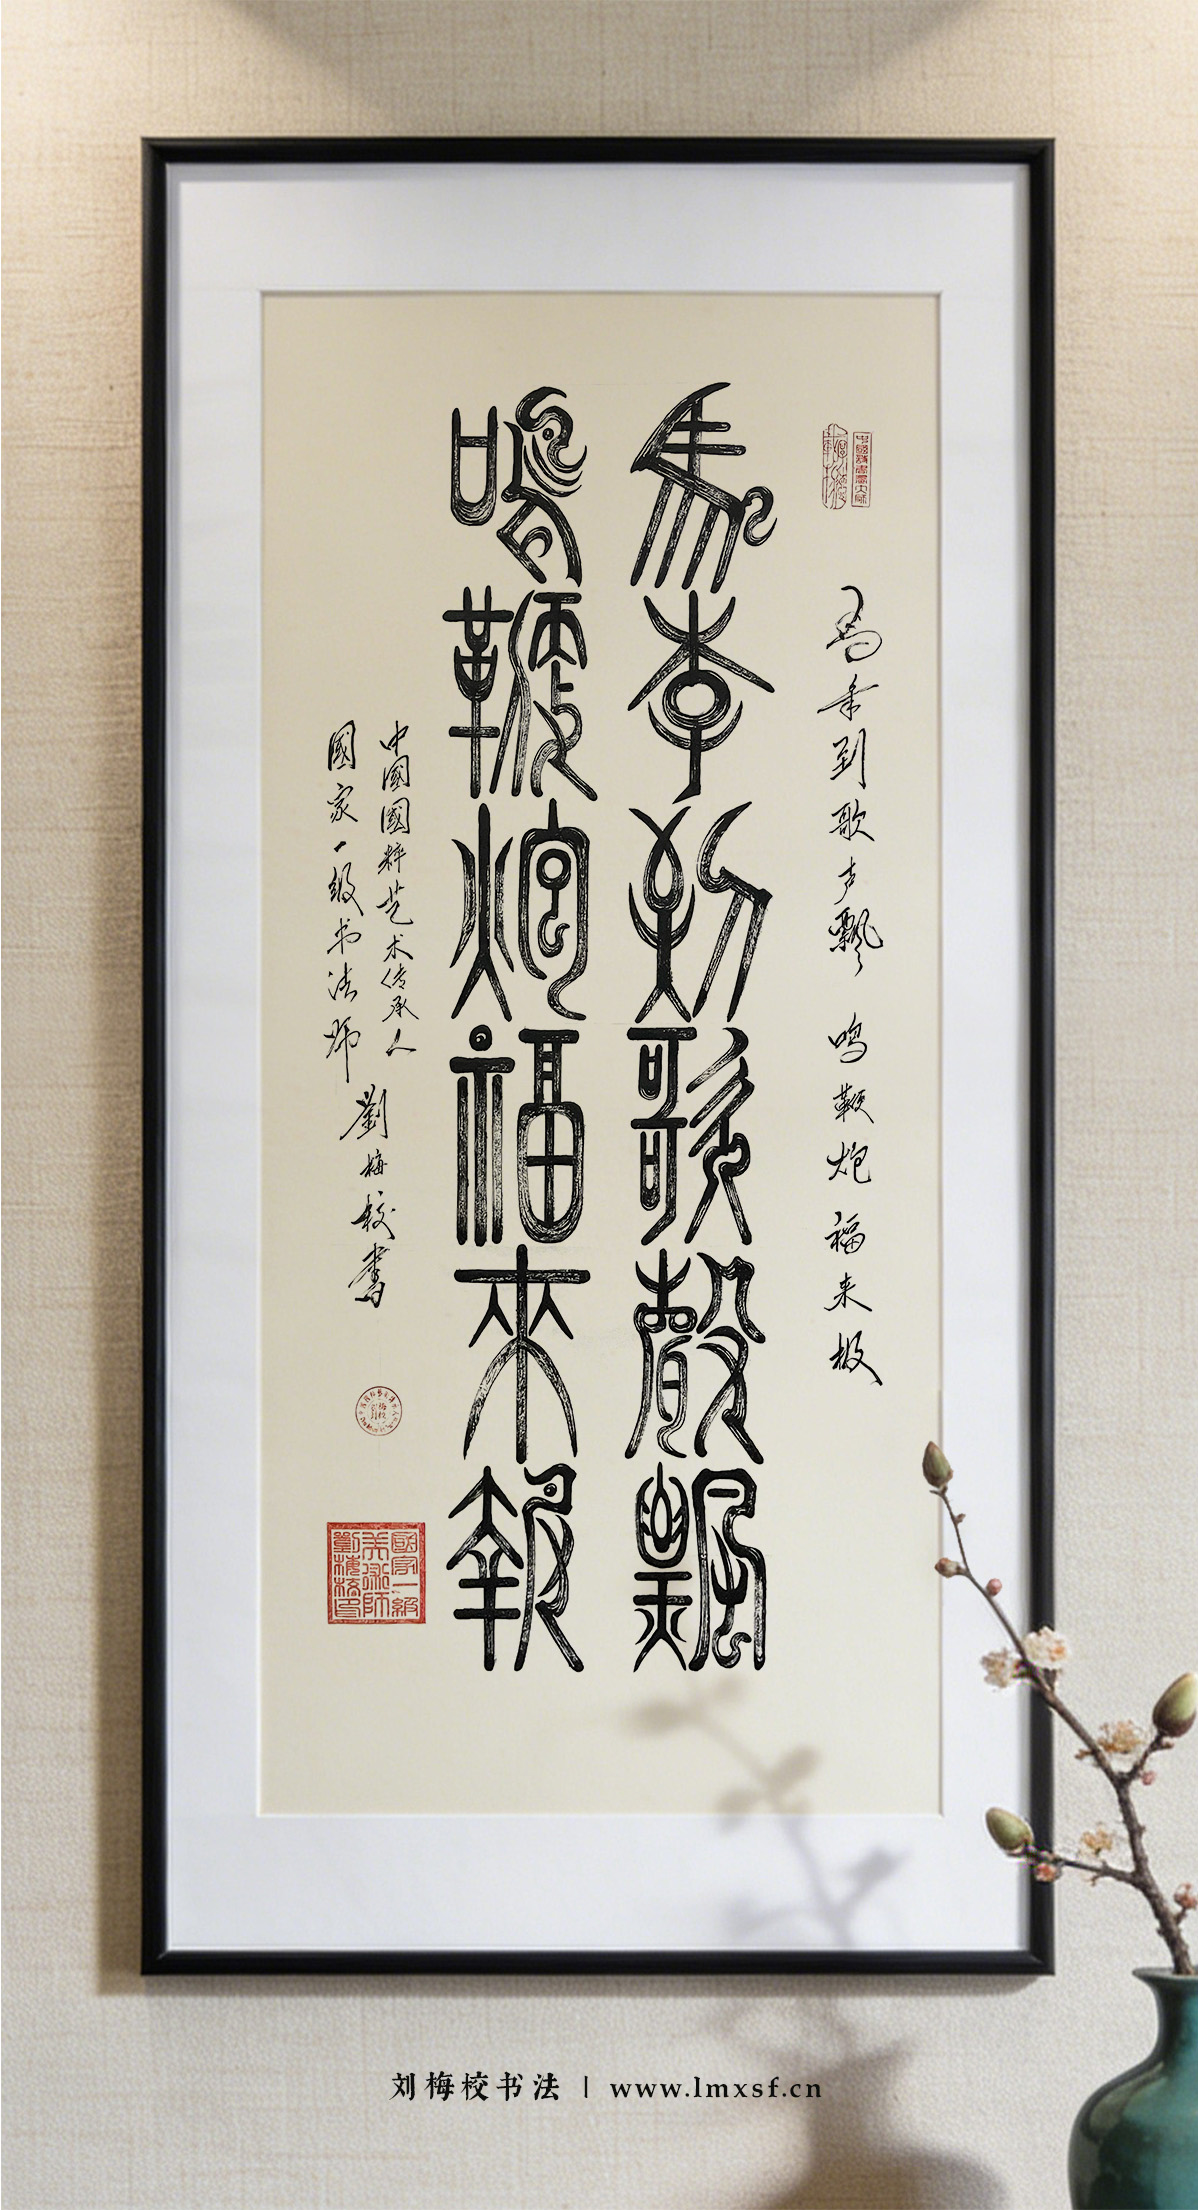 馬年到歌聲飄
鳴鞭炮福來報
马年到歌声飘 鸣鞭炮福来报
中国國粹艺术传承人
國家一级书法师
劉梅校書
國家一級美術師劉梅校印
刘梅校书法 | www.lmxsf.cn